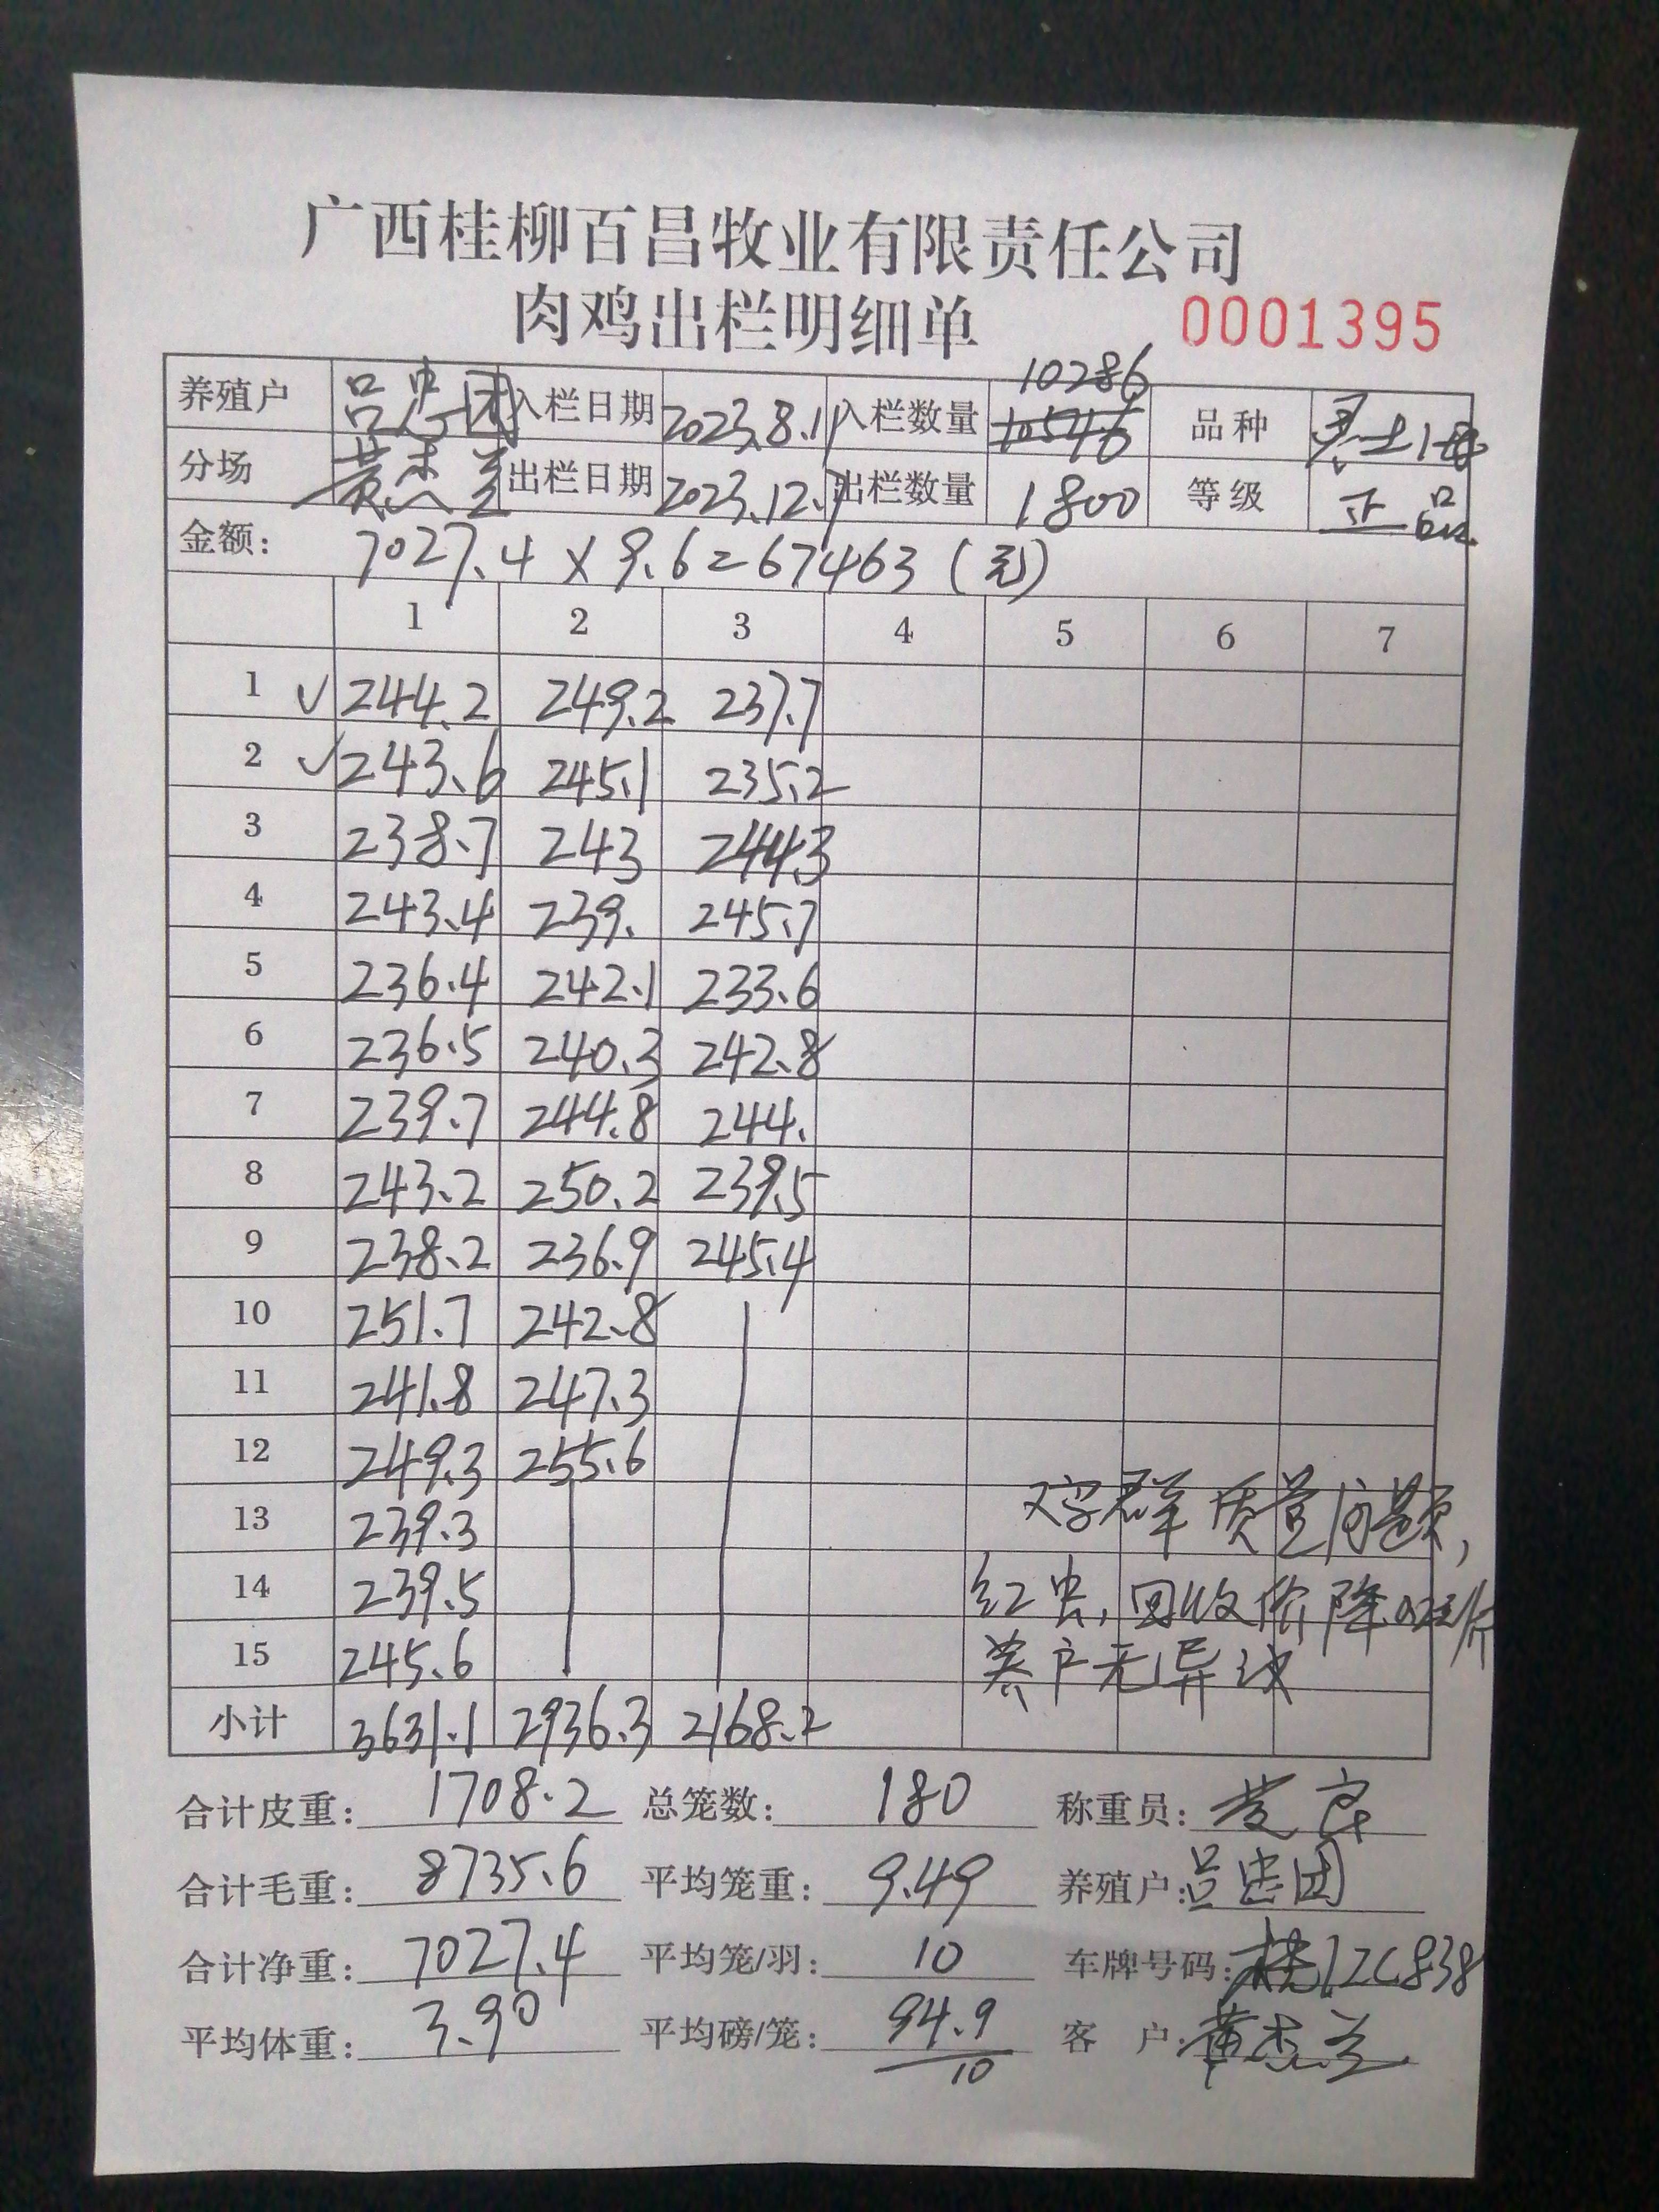 广西桂柳百昌牧业有限责任公司
肉鸡出栏明细单 0001395
10286
养殖户 吕忠团 入栏日期 2023.8.11 入栏数量 10546 品种
分场 黄杰兰 出栏日期 2023.12.7 出栏数量 1800 等级 正品
金额: 7027.4 × 9.6 = 67463 (元)
1 2 3 4 5 6 7
1 ✓ 244.2 249.2 237.7
2 ✓ 243.6 245.1 235.2
3 238.7 243 244.3
4 243.4 239. 245.7
5 236.4 242.1 233.6
6 236.5 240.3 242.8
7 239.7 244.8 244.
8 243.2 250.2 239.5
9 238.2 236.9 245.4
10 251.7 242.8
11 241.8 247.3
12 249.3 255.6
13 239.3 鸡群质量问题,
14 239.5 红虫,回收价降
15 245.6 养户无异议
小计 3631.1 2936.3 2168.2
合计皮重: 1708.2 总笼数: 180 称重员:
合计毛重: 8735.6 平均笼重: 9.49 养殖户: 吕忠团
合计净重: 7027.4 平均笼/羽: 10 车牌号码:
平均体重: 3.90 平均磅/笼: 94.9 客 户: 黄杰兰
10